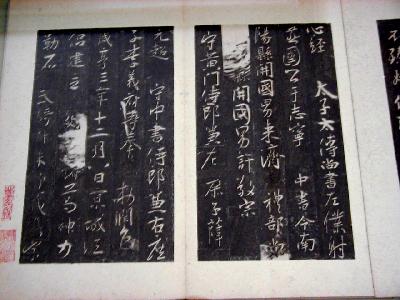 心經 太子太傅尚書左僕射
燕國公于志寧 中書令南
陽縣開國男來濟 禮部尚
開國男許敬宗
守黃門侍郎兼左庶子薛
元超 守中書侍郎兼右庶
子李義府等奉 敕潤色
咸亨三年十二月八日京城法
侶建立 文林郎諸葛神力
勒石 武騎尉朱靜藏